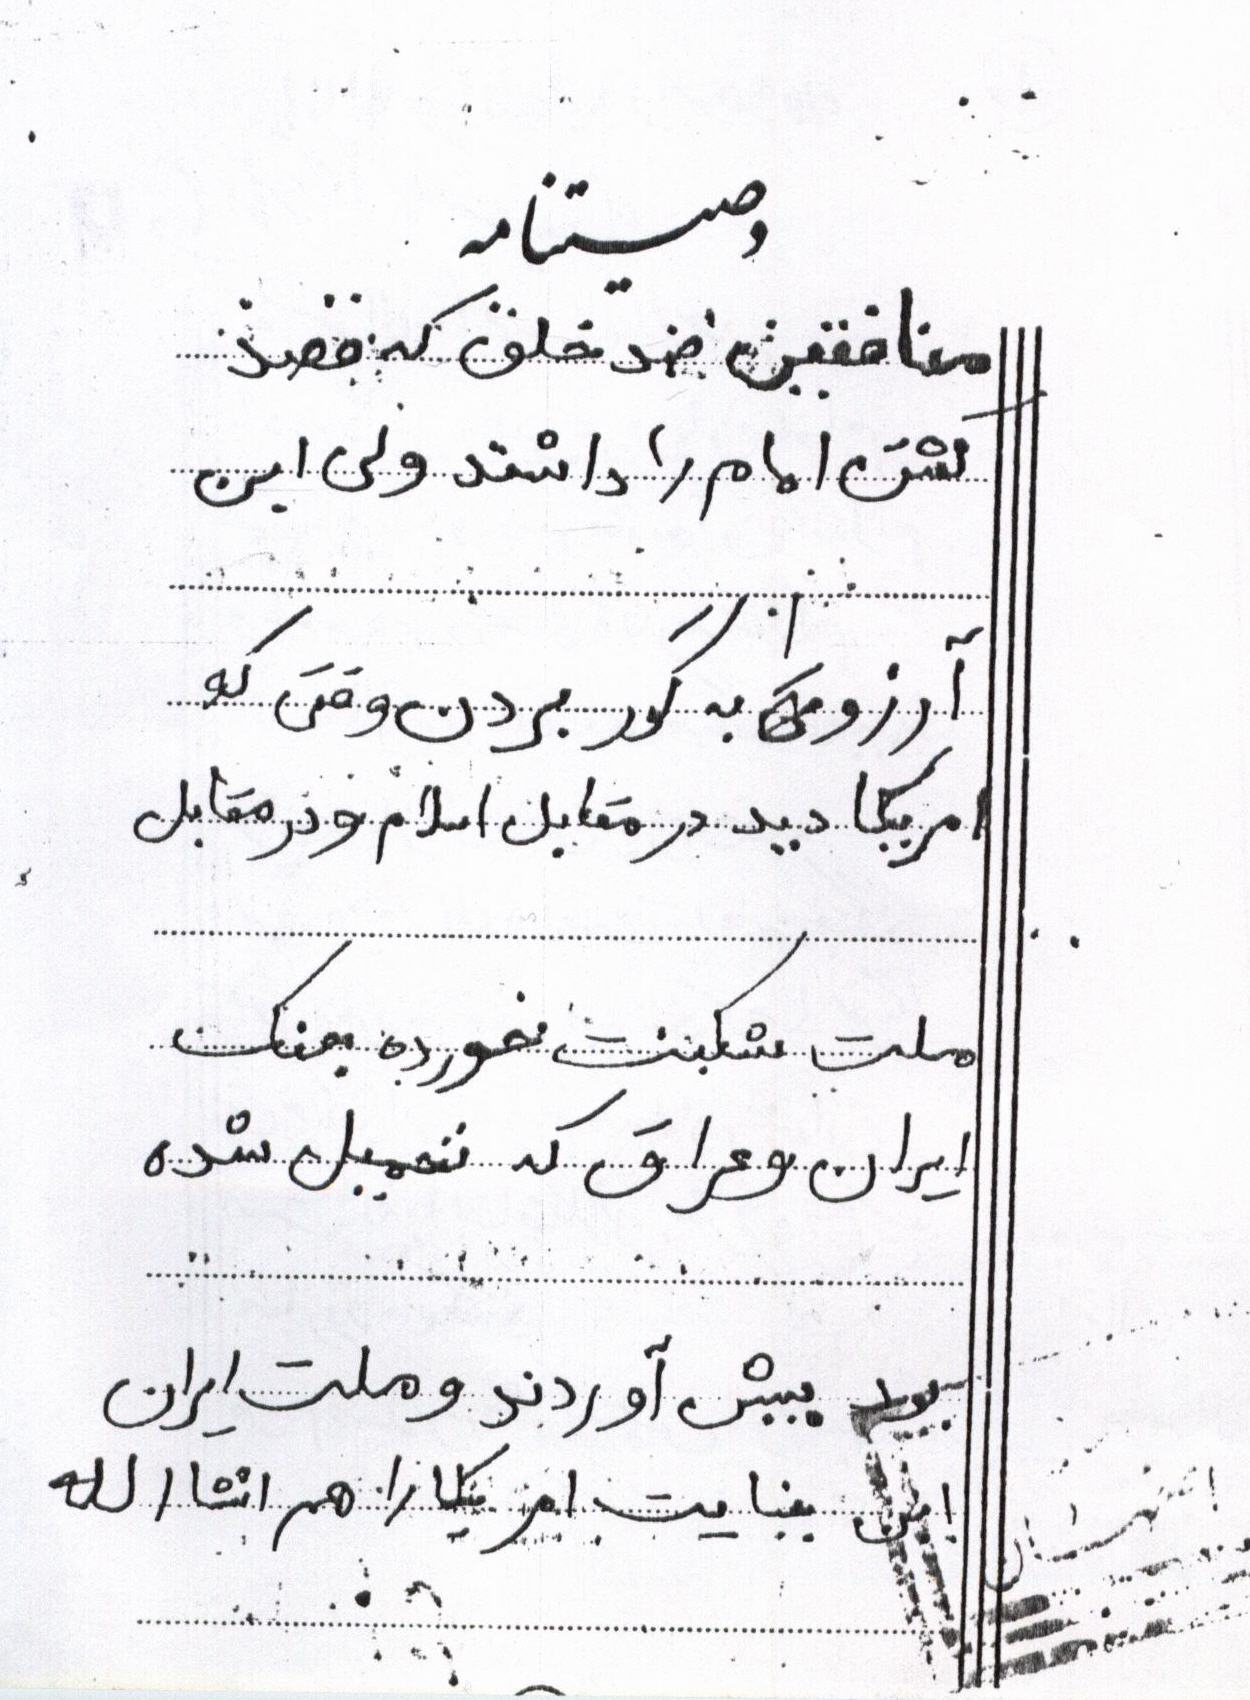 وصیتنامه
منافقین ضد خلق که قصد
کشتن امام را داشتند ولی این
آرزو را به گور بردن وقتی که
امریکا دید در مقابل اسلام و در مقابل
ملت شکست خورده جنگ
ایران و عراق که تحمیل شده
بود پیش آوردند و ملت ایران
این جنایت امریکا را هم انشا الله